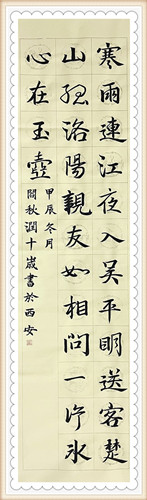 寒雨連江夜入吴平明送客楚
山孤洛陽親友如相問一片冰
心在玉壺
甲辰冬月
閆秋潤十歲書於西安